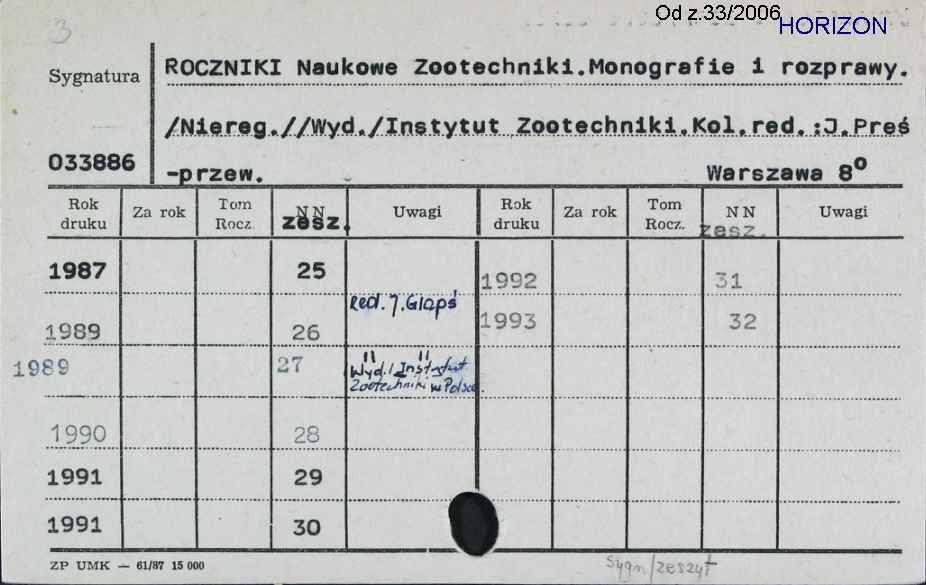 Od z.33/2006
HORIZON
3
Sygnatura
ROCZNIKI Naukowe Zootechniki.Monografie i rozprawy.
/Niereg.//Wyd./Instytut Zootechniki.Kol.red.:J.Preś
033886
-przew. Warszawa 8º
Rok druku Za rok Tom Rocz. NN zesz. Uwagi Rok druku Za rok Tom Rocz. NN zesz. Uwagi
1987 25 1992 31
red. J. Glapś
1989 26 1993 32
1989 27 Wyd./ Instytut
Zootechniki w Polsce
1990 28
1991 29
1991 30
ZP UMK — 61/87 15 000
sygn/zeszyt